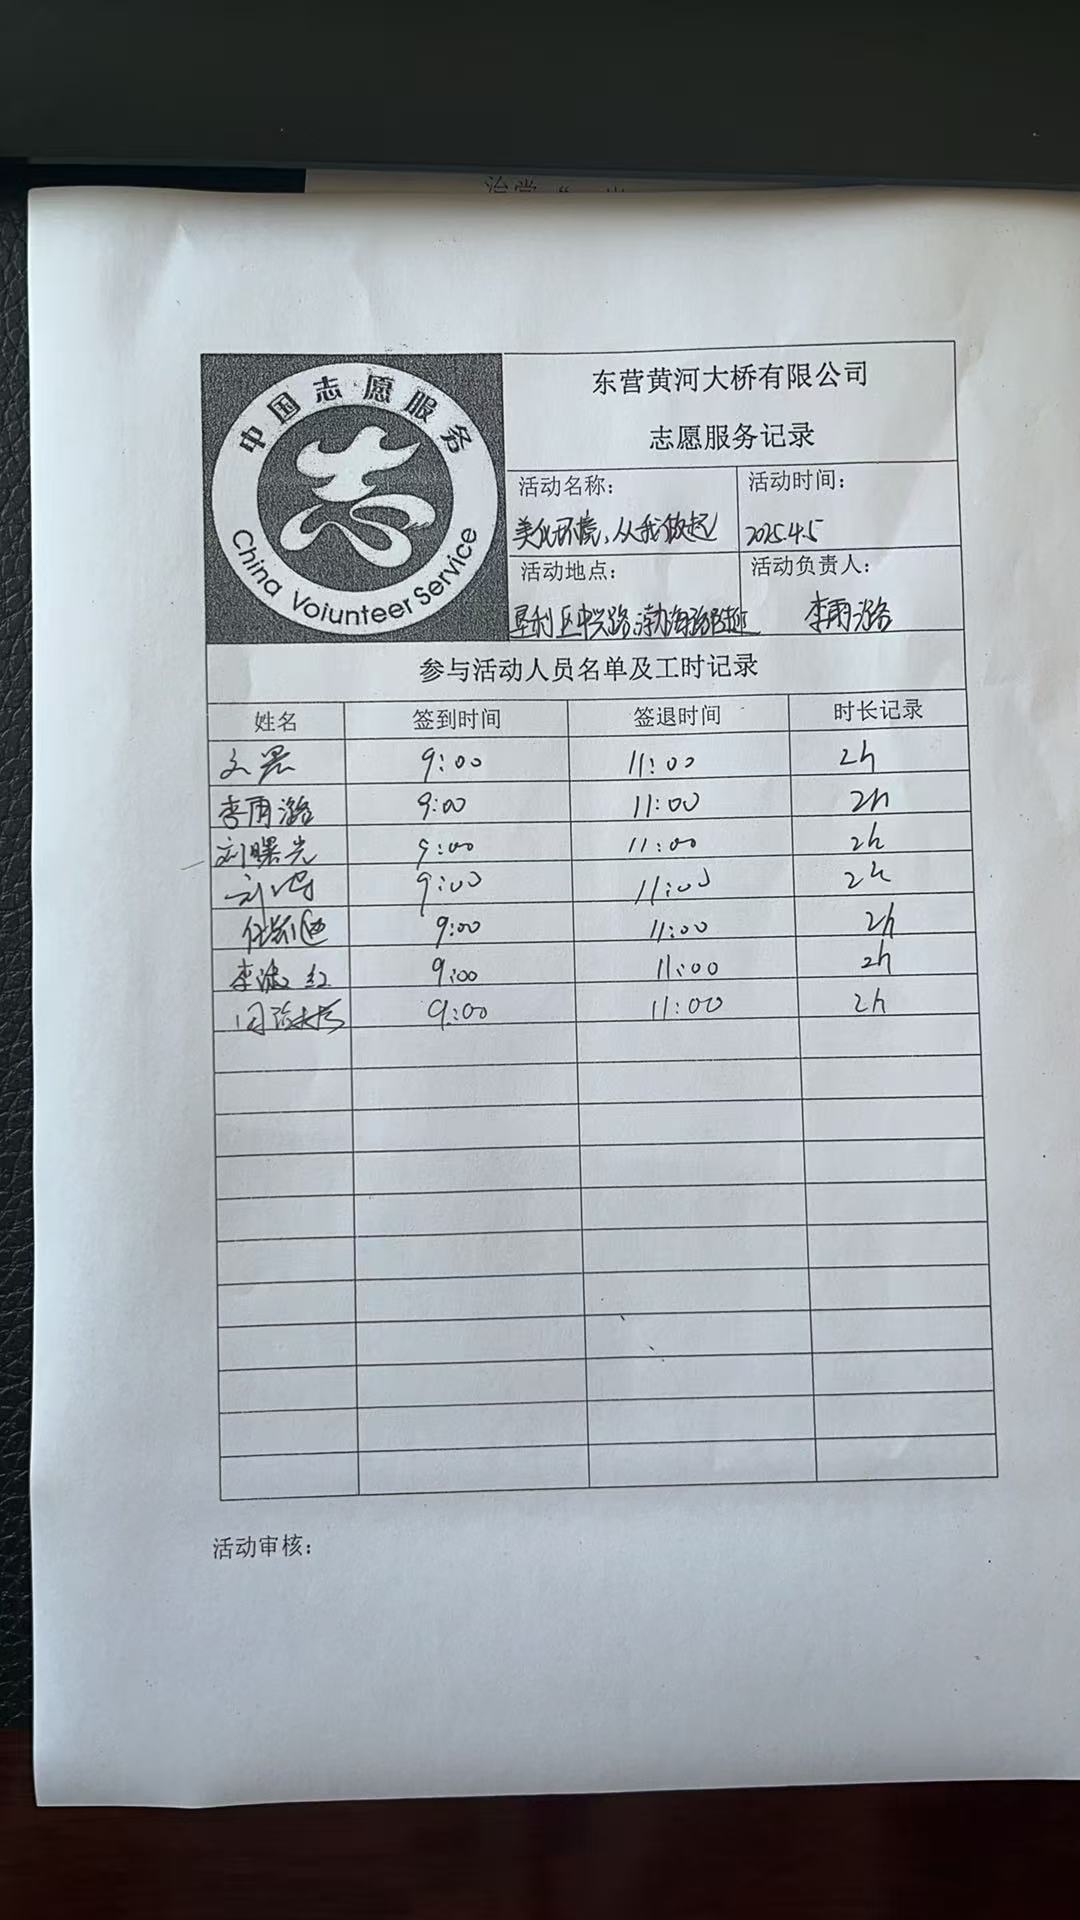 中国志愿服务
志
China Voiunteer Service
东营黄河大桥有限公司
志愿服务记录
活动名称：
活动时间：
美化环境，从我做起
2025.4.5
活动地点：
活动负责人：
垦利区中兴路渤海路
李雨潞
参与活动人员名单及工时记录
姓名 签到时间 签退时间 时长记录
9:00 11:00 2h
李雨潞 9:00 11:00 2h
刘曙光 9:00 11:00 2h
9:00 11:00 2h
任凯迪 9:00 11:00 2h
李淑红 9:00 11:00 2h
9:00 11:00 2h
活动审核：